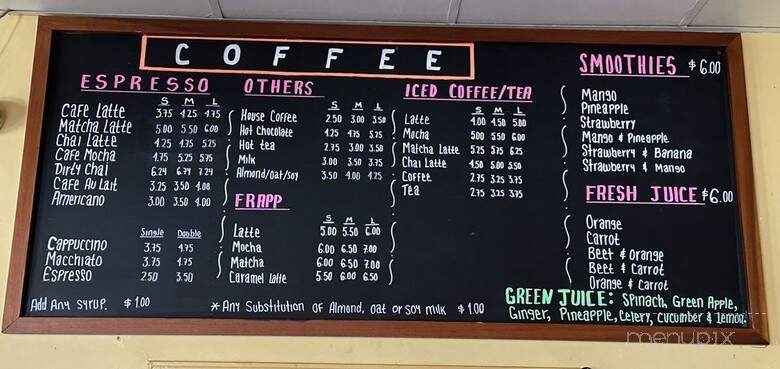 COFFEE
ESPRESSO
S M L
Cafe Latte 3.75 4.25 4.75
Matcha Latte 5.00 5.50 6.00
Chai Latte 4.25 4.75 5.25
Cafe Mocha 4.75 5.25 5.75
Dirty Chai 6.24 6.74 7.24
Cafe Au Lait 3.25 3.50 4.00
Americano 3.00 3.50 4.00
Single Double
Cappuccino 3.75 4.75
Macchiato 3.75 4.75
Espresso 2.50 3.50
OTHERS
S M L
House Coffee 2.50 3.00 3.50
Hot Chocolate 4.25 4.75 5.25
Hot tea 2.75 3.00 3.50
Milk 3.00 3.50 3.75
Almond/oat/soy 3.50 4.00 4.25
FRAPP
S M L
Latte 5.00 5.50 6.00
Mocha 6.00 6.50 7.00
Matcha 6.00 6.50 7.00
Caramel Latte 5.50 6.00 6.50
ICED COFFEE/TEA
S M L
Latte 4.00 4.50 5.00
Mocha 5.00 5.50 6.00
Matcha Latte 5.25 5.75 6.25
Chai Latte 4.50 5.00 5.50
Coffee 2.75 3.25 3.75
Tea 2.75 3.25 3.75
SMOOTHIES $6.00
Mango
Pineapple
Strawberry
Mango & Pineapple
Strawberry & Banana
Strawberry & Mango
FRESH JUICE $6.00
Orange
Carrot
Beet & Orange
Beet & Carrot
Orange & Carrot
GREEN JUICE: Spinach, Green Apple,
Ginger, Pineapple, Celery, Cucumber & Lemon.
Add Any Syrup. $1.00
*Any Substitution of Almond, oat or soy milk $1.00
menupix